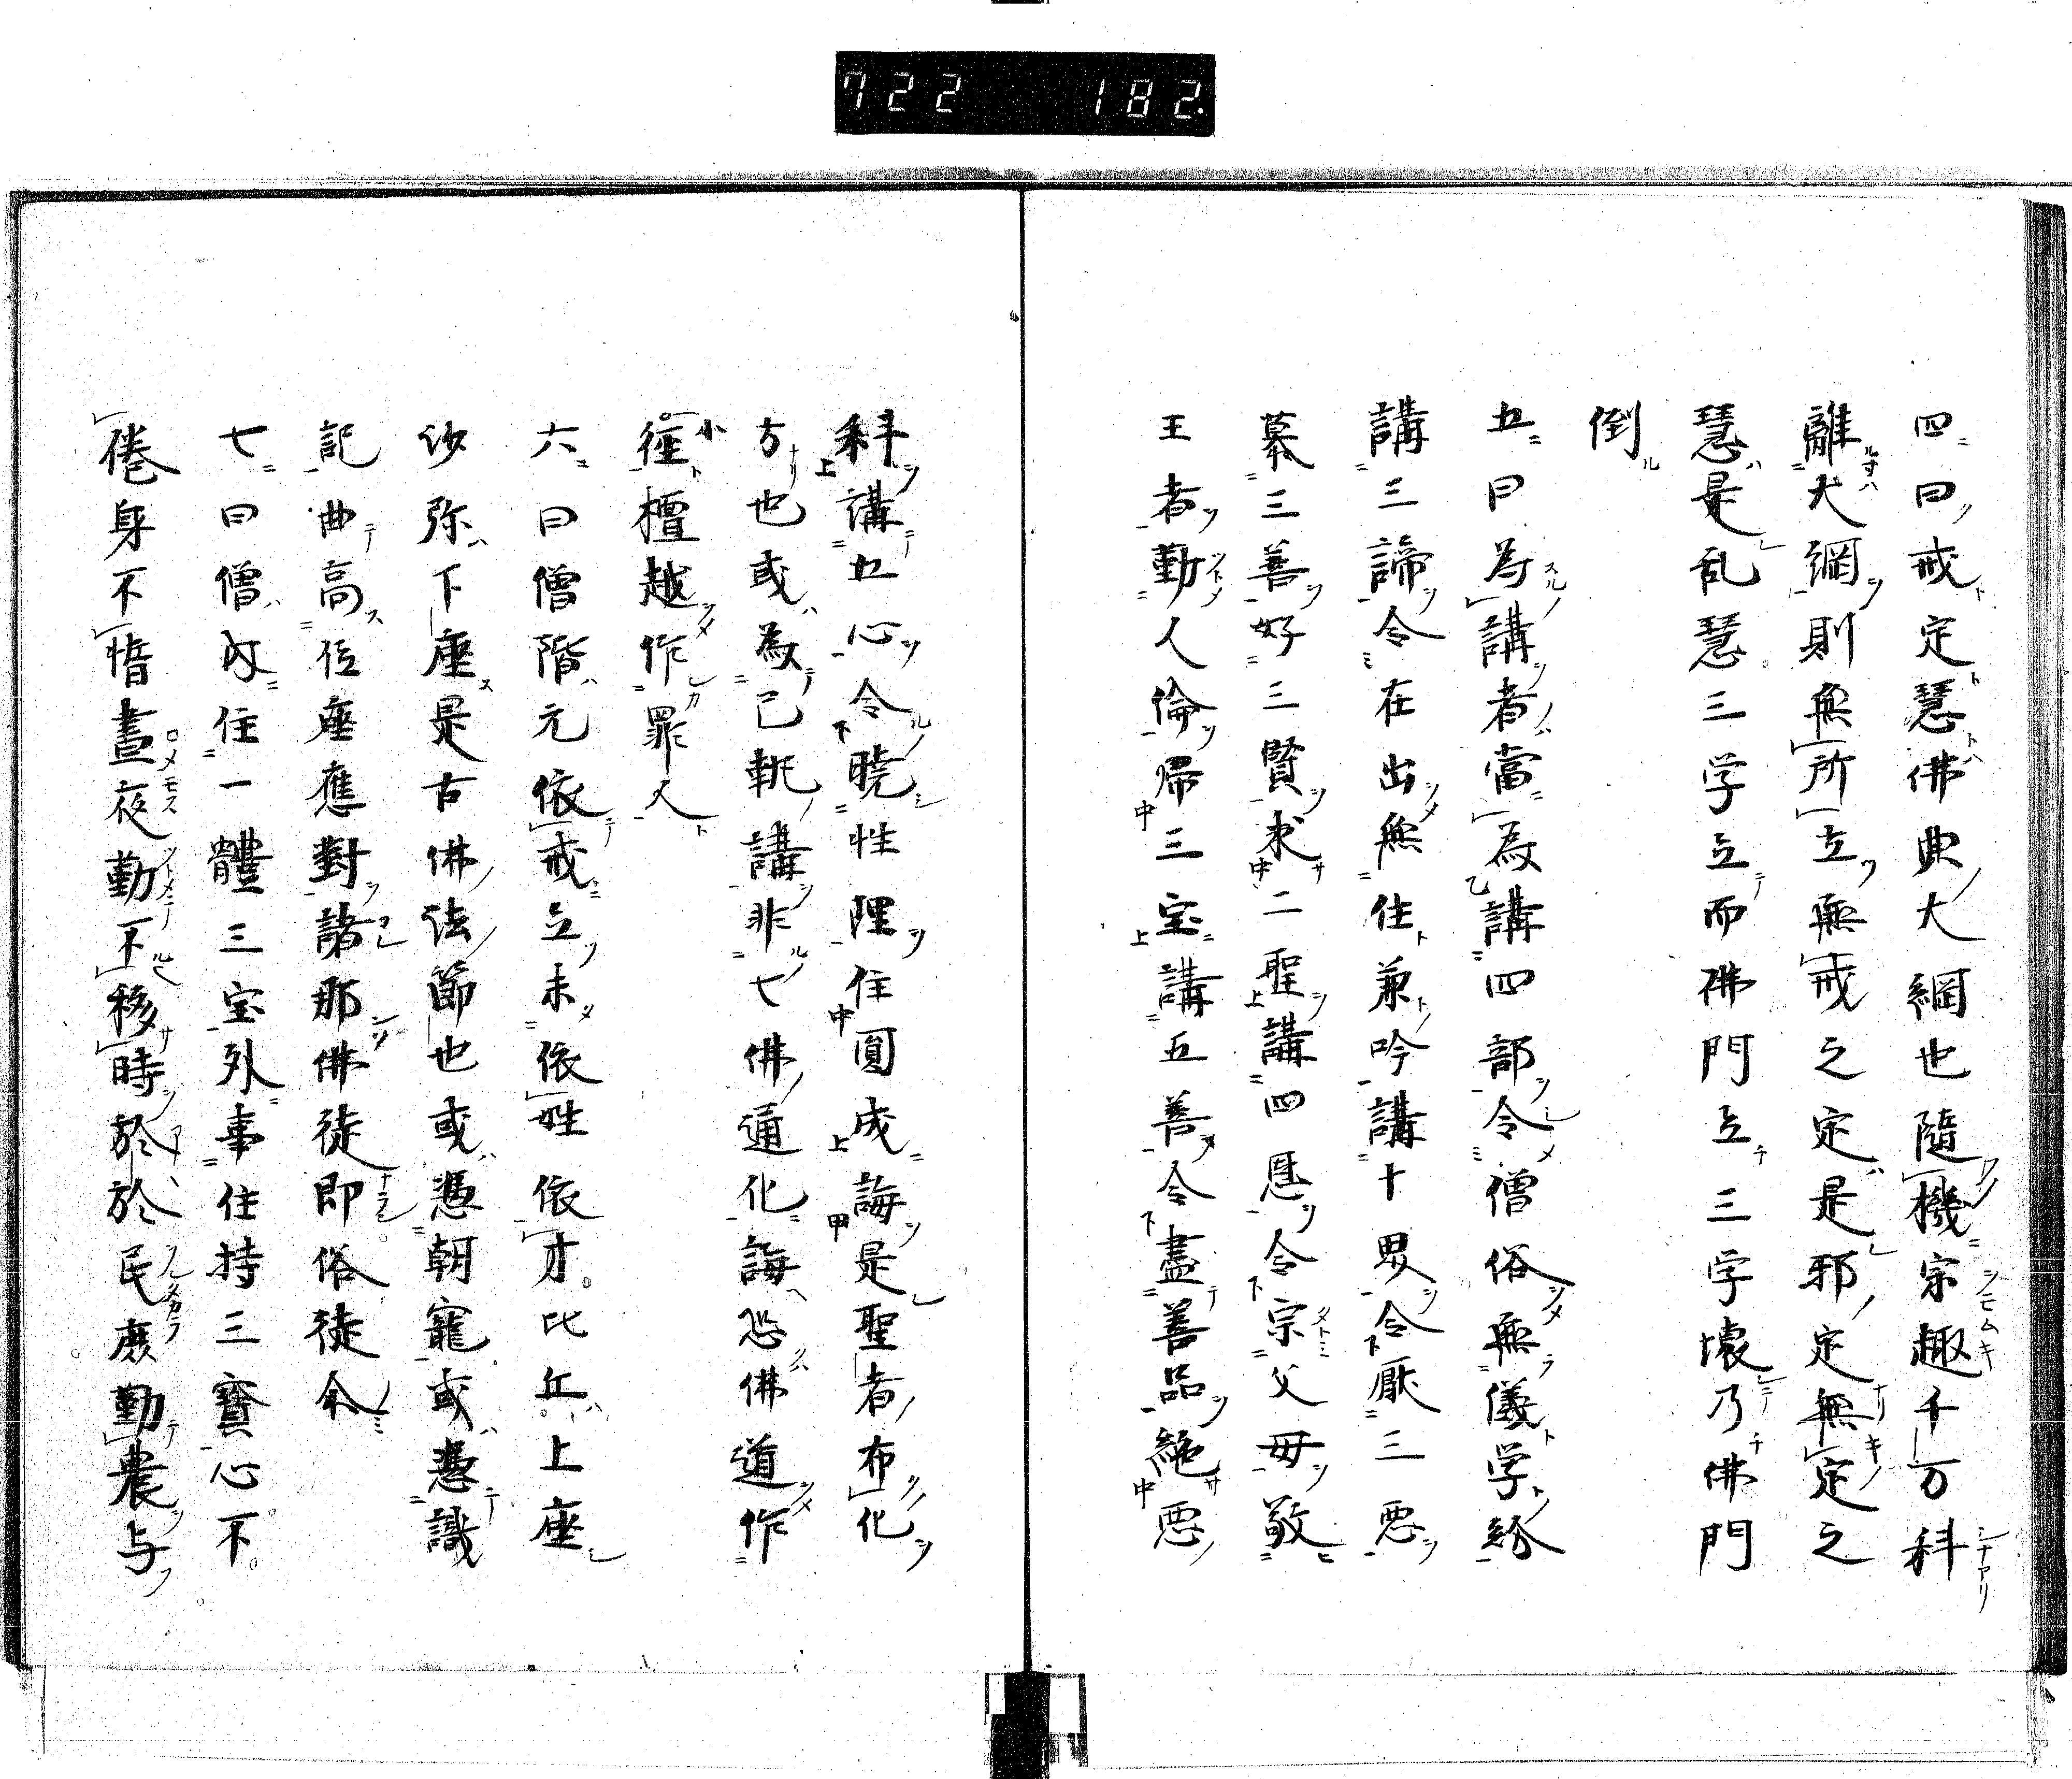 722 182
四曰戒定慧佛典大綱也隨機宗趣千万科
離大綱則無所立無戒之定是邪定無定之
慧是乱慧三学立而佛門立三学壊乃佛門
倒
五曰為講者當為講四部令僧俗無儀学紛
講三諦令在出無住兼吟講十界令厭三悪
慕三善好三賢求二聖講四恩令宗父母敬
王者勤人倫帰三宝講五善令盡善品絶悪
科講五心令暁性理住圓成誨是聖者布化
方也或為己執講非七佛通化誨恐佛道作
徃檀越作罪人
六曰僧階元依戒立未依姓依才比丘上座
沙弥下座是古佛法節也或憑朝寵或憑識
記曲高位座應對諸那佛徒即俗徒尒
七曰僧内住一體三宝外事住持三寶心不
倦身不惜晝夜勤不移時於於民庶勤農与